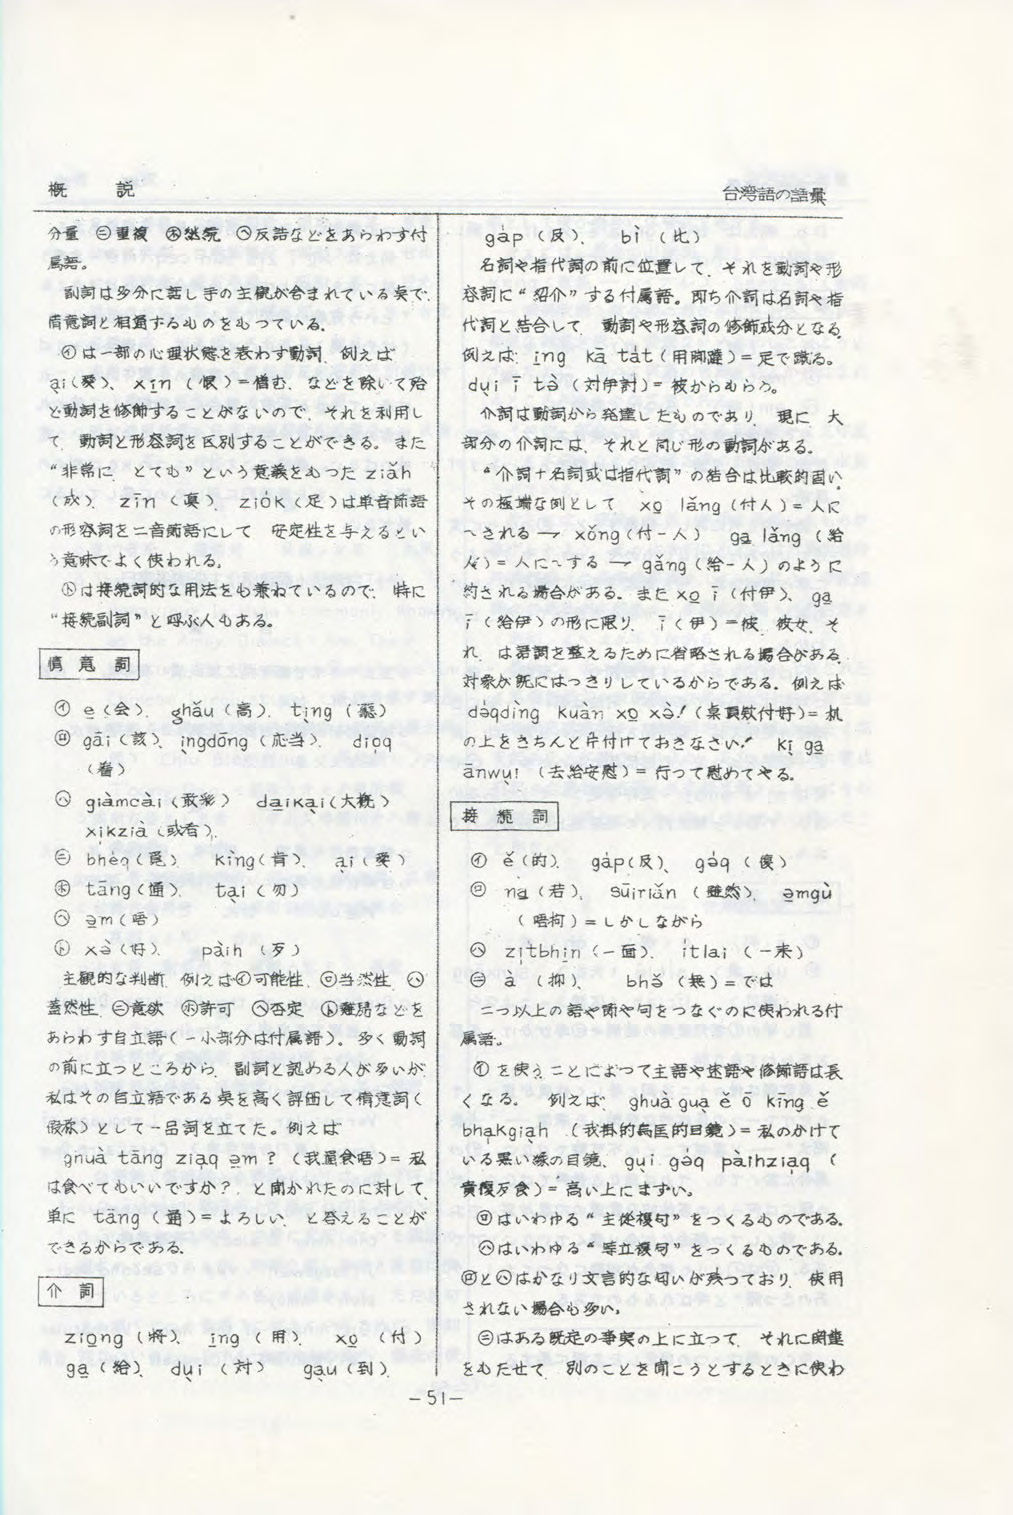 概　説
台湾語の語彙
分量 ㊁重複 ㋭継続 ㋬反語などをあらわす付
属語。
副詞は多分に話し手の主観が含まれている点で、
情意詞と相通ずるものをもつている。
㋑は一部の心理状態を表わす動詞、例えば
ại(愛)、xīn (恨)＝憎む、などを除いて殆
ど動詞を修飾することがないので、それを利用し
て、動詞と形容詞を区別することができる。また
“非常に、とても”という意義をもつた ziǎh
(成)、zīn (真)、ziók (足)は単音節語
の形容詞を二音節語にして 安定性を与えるとい
う意味でよく使われる。
㋣は接続詞的な用法をも兼ねているので、特に
“接続副詞”と呼ぶ人もある。
情意詞
㋑ e̲(会)、ghǎu (高)、tịng (聽)
㋺ gāi(該)、ìngdōng (応当)、diọq
(着)
㋩ giàmcài(敢彩) da̲ikại(大概)
xịkzià (或者)、
㊁ bhèq(覓)、kìng(肯)、ại(愛)
㋭ tāng(通)、tại (勿)
㋬ ə̲m(唔)
㋣ xə̀(好)、pàih (歹)
主観的な判断、例えば㋑可能性、㋺当然性、㋩
蓋然性、㊁意欲 ㋭許可 ㋬否定 ㋣難易などを
あらわす自立語(一小部分は付属語)。多く動詞
の前に立つところから、副詞と認める人が多いが、
私はその自立語である点を高く評価して情意詞(
仮称)として一品詞を立てた。例えば
ghuà tāng ziạq ə̲m? (我通食唔)＝私
は食べてもいいですか?、と聞かれたのに対して、
単に tāng (通)＝よろしい、と答えることが
できるからである。
介　詞
ziọng (将)、īng (用)、xo̲ (付)
ga̲ (給)、dụi (対) gạu(到)、
gàp (反)、bì (比)
名詞や指代詞の前に位置して、それを動詞や形
容詞に“紹介”する付属語。即ち介詞は名詞や指
代詞と結合して、動詞や形容詞の修飾成分となる。
例えば、i̲ng kā tat(用脚躂)＝足で蹴る。
dụi ī tə̀ (対伊討)＝彼からもらう。
介詞は動詞から発達したものであり、現に、大
部分の介詞には、それと同じ形の動詞がある。
“介詞＋名詞或は指代詞”の結合は比較的固い。
その極端な例として、xo̲ lǎng (付人)＝人に
～される → xǒng(付-人) ga̲ lǎng (給
人)＝人に～する → gǎng (給-人)のように
約される場合がある。また xo̲ ī (付伊)、ga̲
ī (給伊)の形に限り、ī (伊)＝彼、彼女、そ
れ、は語調を整えるために省略される場合がある。
対象が既にはつきりしているからである。例えば
dəqdìng kuàn xo̲ xə̀! (桌頂欵付好)＝机
の上をきちんと片付けておきなさい! kị ga̲
ānwụi (去給安慰)＝行つて慰めてやる。
接続詞
㋑ ě(的)、gáp(反)、gəq (復)
㋺ na̲(若)、sūiriǎn (雖然)、ə̲mgù
(唔拘)＝しかしながら
㋩ zịtbhi̲n(一面)、ítlai (一来)
㊁ à (抑)、bhə̌ (無)＝では
二つ以上の語や節や句をつなぐのに使われる付
属語。
㋑ を使うことによつて主語や述語や修飾語は長
くなる。 例えば、ghuà guạ ě ō kīng ě
bhạkgiạh (我掛的烏匡的目鏡)＝私のかけて
いる黒い縁の目鏡、gụi gəq pàihziạq (
貴復歹食)＝高い上にまずい。
㋺はいわゆる“主従複句”をつくるものである。
㋩はいわゆる“等立複句”をつくるものである。
㋺と㋩はかなり文言的な匂いが残つており、使用
されない場合も多い。
㊁はある既定の事実の上に立つて、それに関連
をもたせて、別のことを聞こうとするときに使わ
－51－